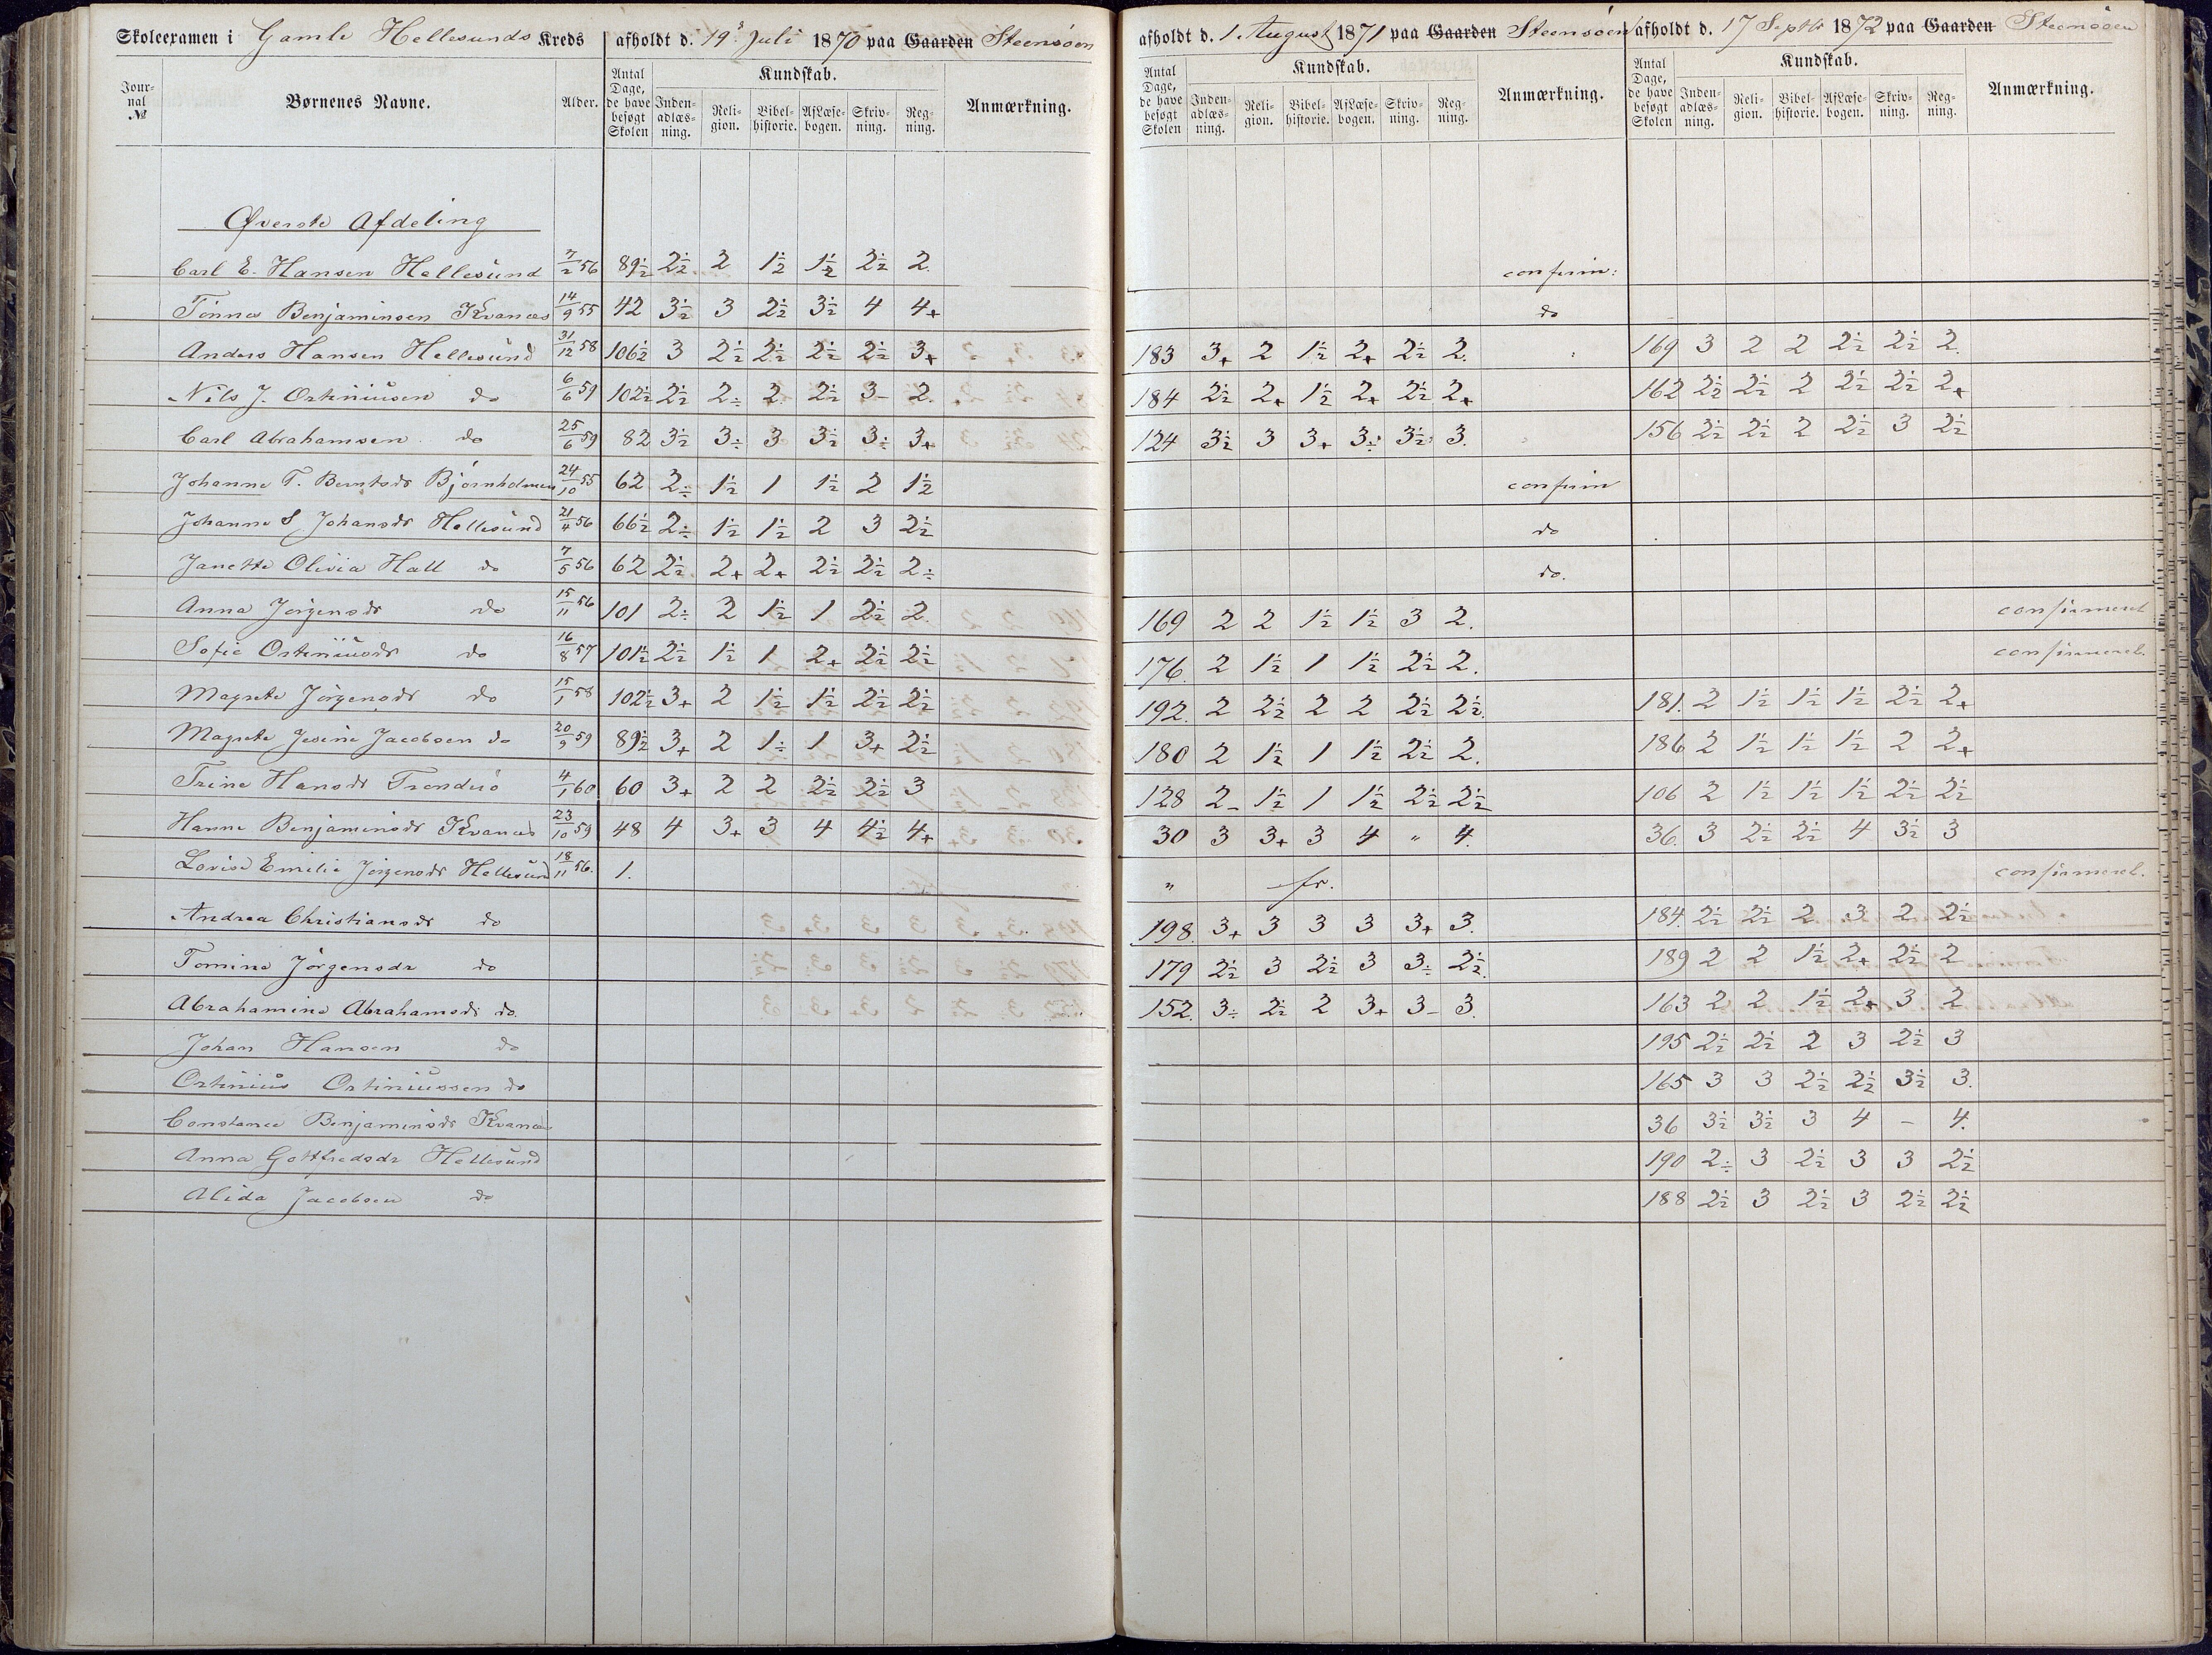 Skoleexamen i Gamle Hellesunds Kreds afholdt d. 19 Juli 1870 paa Gaarden Steensøen afholdt d. 1. August 1871 paa Gaarden Steensøen afholdt d. 17 Septbr 1872 paa Gaarden Steensøen
Jour-nal № Børnenes Navne. Alder. Antal Dage, de have besøgt Skolen Kundskab. Inden-adlæs-ning. Reli-gion. Bibel-historie. AfLæse-bogen. Skriv-ning. Reg-ning. Anmærkning. Antal Dage, de have besøgt Skolen Kundskab. Inden-adlæs-ning. Reli-gion. Bibel-historie. AfLæse-bogen. Skriv-ning. Reg-ning. Anmærkning. Antal Dage, de have besøgt Skolen Kundskab. Inden-adlæs-ning. Reli-gion. Bibel-historie. AfLæse-bogen. Skriv-ning. Reg-ning. Anmærkning.
Øverste Afdeling
Carl E. Hansen Hellesund 7/2 56 89½ 2½ 2 1½ 1½ 2½ 2. confirm:
Tönnes Benjaminsen Kvanæs 14/9 55 42 3½ 3 2½ 3½ 4 4+ do
Anders Hansen Hellesund 31/12 58 106½ 3 2½ 2½ 2½ 2½ 3+ 183 3+ 2 1½ 2+ 2½ 2. 169 3 2 2 2½ 2½ 2.
Nils J. Ostiniusen do 6/6 59 102½ 2½ 2÷ 2 2½ 3- 2. 184 2½ 2+ 1½ 2+ 2½ 2+ 162 2½ 2½ 2 2½ 2½ 2+
Carl Abrahamsen do 25/6 59 82 3½ 3÷ 3 3½ 3÷ 3+ 124 3½ 3 3+ 3÷ 3½ 3. 156 2½ 2½ 2 2½ 3 2½
Johanne T. Berntsdr Björnholmen 24/10 55 62 2÷ 1½ 1 1½ 2 1½ confirm
Johanne S Johansdr Hellesund 21/4 56 66½ 2÷ 1½ 1½ 2 3 2½ do
Janette Olivia Hall do 7/5 56 62 2½ 2+ 2+ 2½ 2½ 2÷ do.
Anna Jörgensdr do 15/11 56 101 2÷ 2 1½ 1 2½ 2. 169 2 2 1½ 1½ 3 2. confirmeret
Sofie Ostiniusdr do 16/8 57 101½ 2½ 1½ 1 2+ 2½ 2½ 176 2 1½ 1 1½ 2½ 2. confirmeret.
Magrete Jörgensdr do 15/1 58 102½ 3+ 2 1½ 1½ 2½ 2½ 192. 2 2½ 2 2 2½ 2½. 181. 2 1½ 1½ 1½ 2½ 2+
Magrete Jesine Jacobsen do 20/9 59 89½ 3+ 2 1÷ 1 3+ 2½ 180 2 1½ 1 1½ 2½ 2. 186 2 1½ 1½ 1½ 2 2+
Trine Hansdr Trondesö 4/1 60 60 3+ 2 2 2½ 2½ 3 128 2- 1½ 1 1½ 2½ 2½ 106 2 1½ 1½ 1½ 2½ 2½
Hanne Benjaminsdr Kvanæs 23/10 59 48 4 3+ 3 4 4½ 4+ 30 3 3+ 3 4 " 4. 36. 3 2½ 2½ 4 3½ 3
Lovise Emilie Jörgensdr Hellesund 18/11 56. 1. " fr. confirmeret.
Andrea Christiansdr do 198. 3+ 3 3 3 3+ 3. 184. 2½ 2½ 2 3 2 2½
Tomine Jörgensdr do 179 2½ 3 2½ 3 3÷ 2½. 189 2 2 1½ 2+ 2½ 2
Abrahamine Abrahamsdr do. 152. 3÷ 2½ 2 3+ 3- 3. 163 2 2 1½ 2+ 3 2
Johan Hansen do 195 2½ 2½ 2 3 2½ 3
Ostinius Ostiniussen do 165 3 3 2½ 2½ 3½ 3.
Constance Benjaminsdr Kvanæs 36 3½ 3½ 3 4 - 4.
Anna Gottfredsdr Hellesund 190 2÷ 3 2½ 3 3 2½
Alida Jacobsen do 188 2½ 3 2½ 3 2½ 2½